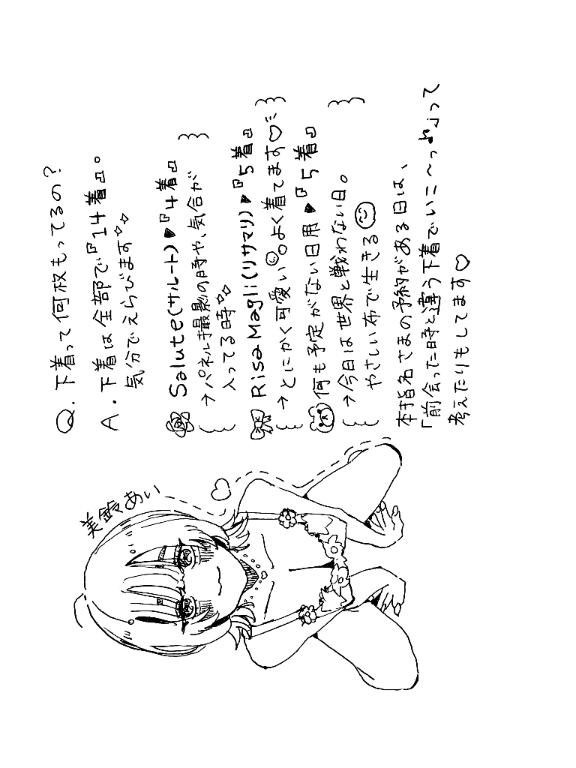 Q. 下着って何枚もってるの？
A. 下着は全部で『14着』。
気分でえらびます
Salute(サルート)▶『4着』
→パネル撮影の時や、気合が
入ってる時
RisaMagli(リサマリ)▶『5着』
→とにかく可愛い。よく着てます♡
何も予定がない日用▶『5着』
→今日は世界と戦わない日。
やさしい布で生きる
本指名さまの予約がある日は、
「前会った時と違う下着でいこ〜っ♪」って
考えたりもしてます♡
美鈴あい